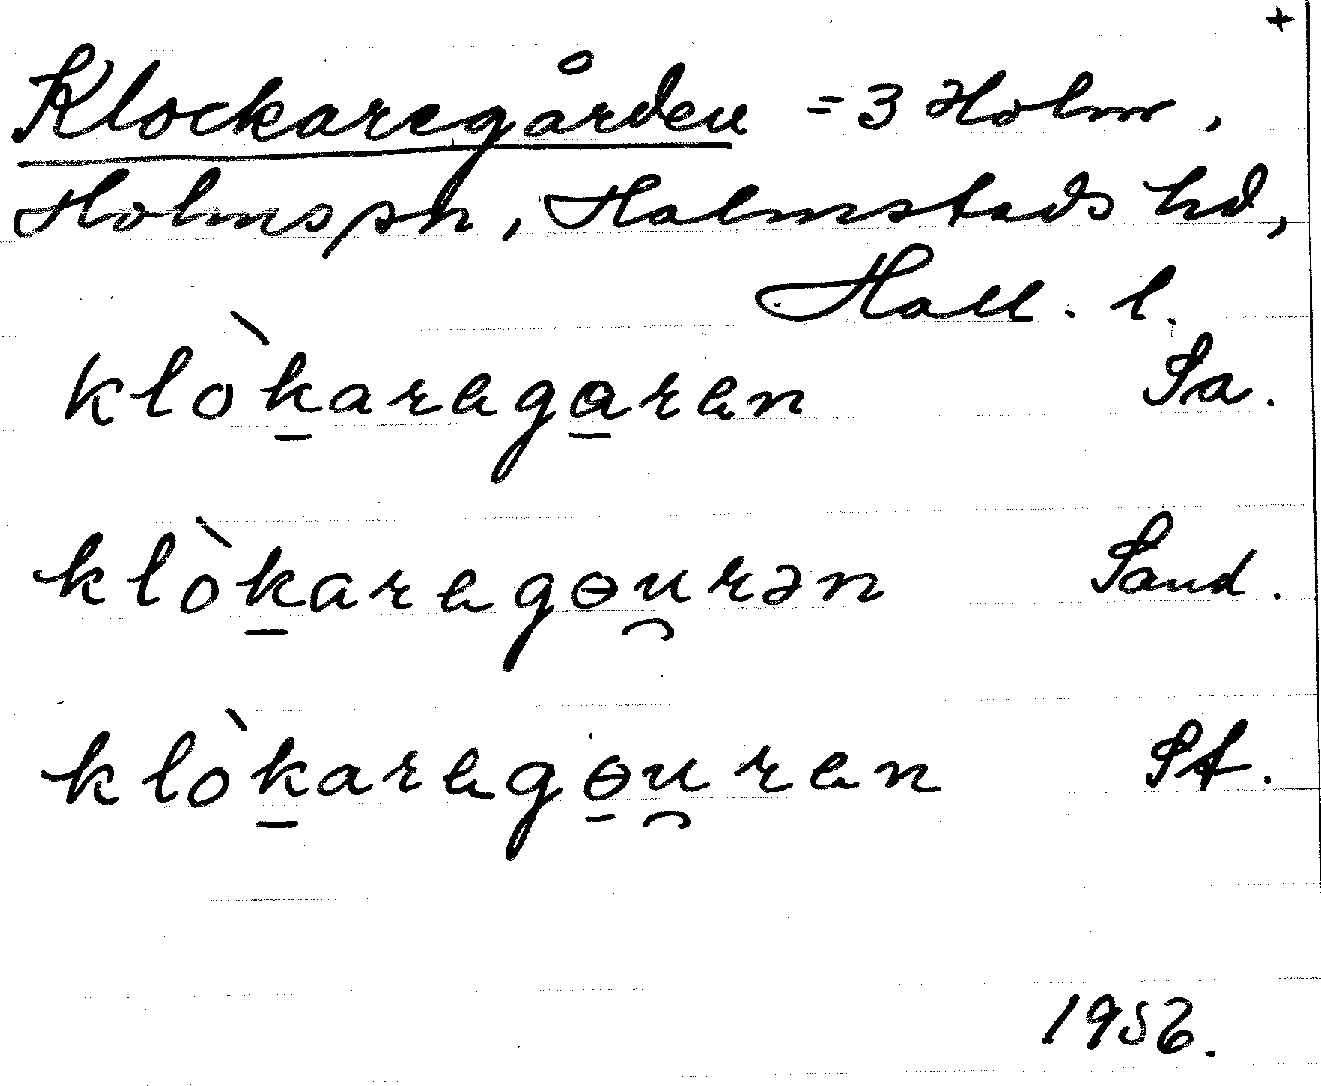 +
Klockaregården = 3 Holm,
Holms sn, Halmstads hd,
Hall. l.
klòk̲arega̲ren Sa.
klòk̲aregɵu̯rən Sand.
klòk̲aregɵ̲u̯ren St.
1956.